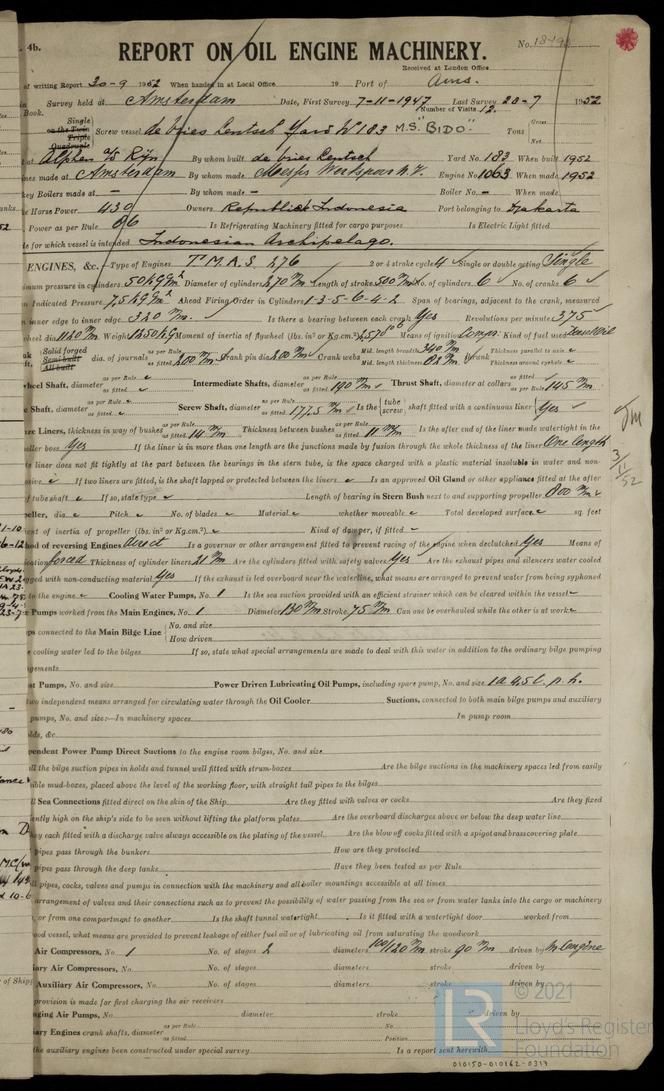 4b.
REPORT ON OIL ENGINE MACHINERY.
No. 13490
Received at London Office
of writing Report 20-9 1952 When handed in at Local Office 19 Port of Ams.
Survey held at Amsterdam Date, First Survey 7-11-1947 Last Survey 20-7 1952
Book. Number of Visits 12.
Single
on the Twin
Triple
Quadruple
Screw vessel de Vries Lentsch Yard No 183 M.S. "BIDO" Tons Gross
Net
at Alphen a/d Rijn By whom built de Vries Lentsch Yard No. 183 When built 1952
nes made at Amsterdam By whom made Messrs Werkspoor N.V. Engine No. 1063 When made 1952
key Boilers made at - By whom made - Boiler No. - When made
e Horse Power 430 Owners Republiek Indonesia Port belonging to Djakarta
Power as per Rule 86 Is Refrigerating Machinery fitted for cargo purposes Is Electric Light fitted
de for which vessel is intended Indonesian Archipelago.
ENGINES, &c.—Type of Engines T.M.A.S. 276 2 or 4 stroke cycle 4 Single or double acting Single
mum pressure in cylinders 50 kg/cm² Diameter of cylinders 270 m/m Length of stroke 500 m/m No. of cylinders 6 No. of cranks 6
n Indicated Pressure 7,5 kg/cm² Ahead Firing Order in Cylinders 1-3-5-6-4-2 Span of bearings, adjacent to the crank, measured
inner edge to inner edge 320 m/m. Is there a bearing between each crank Yes Revolutions per minute 375
wheel dia 1120 m/m Weight 1250 kg Moment of inertia of flywheel (lbs. in² or Kg.cm.²) Means of ignition Compr. Kind of fuel used Diesel Oil
Solid forged
Semi built
All built
dia. of journals as per Rule
as fitted 200 m/m Crank pin dia 200 m/m Crank webs Mid. length breadth 340 m/m Thickness parallel to axis
Mid. length thickness Thickness around eyehole
wheel Shaft, diameter as per Rule
as fitted Intermediate Shafts, diameter as per Rule
as fitted 140 m/m Thrust Shaft, diameter at collars as fitted
as per Rule 145 m/m
e Shaft, diameter as per Rule
as fitted Screw Shaft, diameter as per Rule
as fitted 177.5 m/m Is the {tube
screw} shaft fitted with a continuous liner Yes
nze Liners, thickness in way of bushes as per Rule
as fitted 14 m/m Thickness between bushes as per Rule
as fitted 11 m/m Is the after end of the liner made watertight in the
eller boss Yes If the liner is in more than one length are the junctions made by fusion through the whole thickness of the liner One length
e liner does not fit tightly at the part between the bearings in the stern tube, is the space charged with a plastic material insoluble in water and non-
sive If two liners are fitted, is the shaft lapped or protected between the liners Is an approved Oil Gland or other appliance fitted at the after
of tube shaft If so, state type Length of bearing in Stern Bush next to and supporting propeller 800 m/m
peller, dia Pitch No. of blades Material whether moveable Total developed surface sq. feet
ent of inertia of propeller (lbs. in² or Kg.cm.²) Kind of damper, if fitted
hod of reversing Engines direct Is a governor or other arrangement fitted to prevent racing of the engine when declutched Yes Means of
ation forced Thickness of cylinder liners 21 m/m Are the cylinders fitted with safety valves Yes Are the exhaust pipes and silencers water cooled
gged with non-conducting material Yes If the exhaust is led overboard near the waterline, what means are arranged to prevent water from being syphoned
to the engine Cooling Water Pumps, No. 1 Is the sea suction provided with an efficient strainer which can be cleared within the vessel
e Pumps worked from the Main Engines, No. 1 Diameter 130 m/m Stroke 75 m/m Can one be overhauled while the other is at work
ps connected to the Main Bilge Line {No. and size
How driven
e cooling water led to the bilges If so, state what special arrangements are made to deal with this water in addition to the ordinary bilge pumping
ngements
st Pumps, No. and size Power Driven Lubricating Oil Pumps, including spare pump, No. and size
two independent means arranged for circulating water through the Oil Cooler Suctions, connected to both main bilge pumps and auxiliary
pumps, No. and size:—In machinery spaces In pump room
lds, &c.
pendent Power Pump Direct Suctions to the engine room bilges, No. and size
all the bilge suction pipes in holds and tunnel well fitted with strum-boxes Are the bilge suctions in the machinery spaces led from easily
sible mud-boxes, placed above the level of the working floor, with straight tail pipes to the bilges
ll Sea Connections fitted direct on the skin of the Ship Are they fitted with valves or cocks Are they fixed
ently high on the ship's side to be seen without lifting the platform plates Are the overboard discharges above or below the deep water line
hey each fitted with a discharge valve always accessible on the plating of the vessel Are the blow off cocks fitted with a spigot and brass covering plate
pipes pass through the bunkers How are they protected
pipes pass through the deep tanks Have they been tested as per Rule
ll pipes, cocks, valves and pumps in connection with the machinery and all boiler mountings accessible at all times
arrangement of valves and their connections such as to prevent the possibility of water passing from the sea or from water tanks into the cargo or machinery
, or from one compartment to another Is the shaft tunnel watertight Is it fitted with a watertight door worked from
ood vessel, what means are provided to prevent leakage of either fuel oil or of lubricating oil from saturating the woodwork
Air Compressors, No. 1 No. of stages 2 diameters 100/120 m/m stroke 90 m/m driven by M. engine
iary Air Compressors, No. No. of stages diameters stroke driven by
Auxiliary Air Compressors, No. No. of stages diameters stroke driven by
provision is made for first charging the air receivers
nging Air Pumps, No. diameter stroke driven by
iary Engines crank shafts, diameter as per Rule
as fitted No
Position
the auxiliary engines been constructed under special survey Is a report sent herewith
3/11/52
LR
© 2021
Lloyd's Register
Foundation
010150-010162-0317